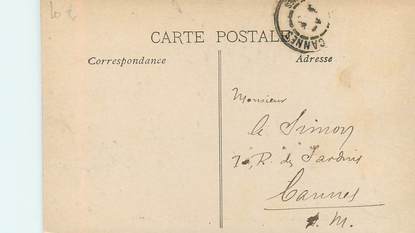 CANNES
CARTE POSTALE
Correspondance
Adresse
Monsieur
A Simon
R. des Jardins
Cannes
A. M.